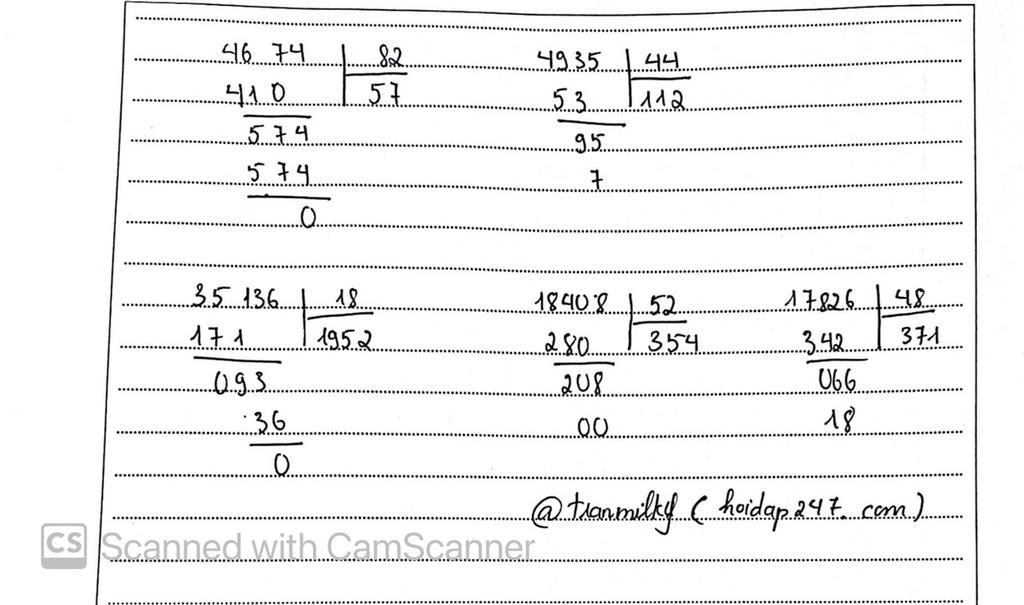 4674 82 4935 44
410 57 53 112
574 95
574 7
0
35 136 18 18408 52 17826 48
171 1952 280 354 342 371
093 208 066
36 00 18
0
@tranmilky ( hoidap247. com )
CS Scanned with CamScanner